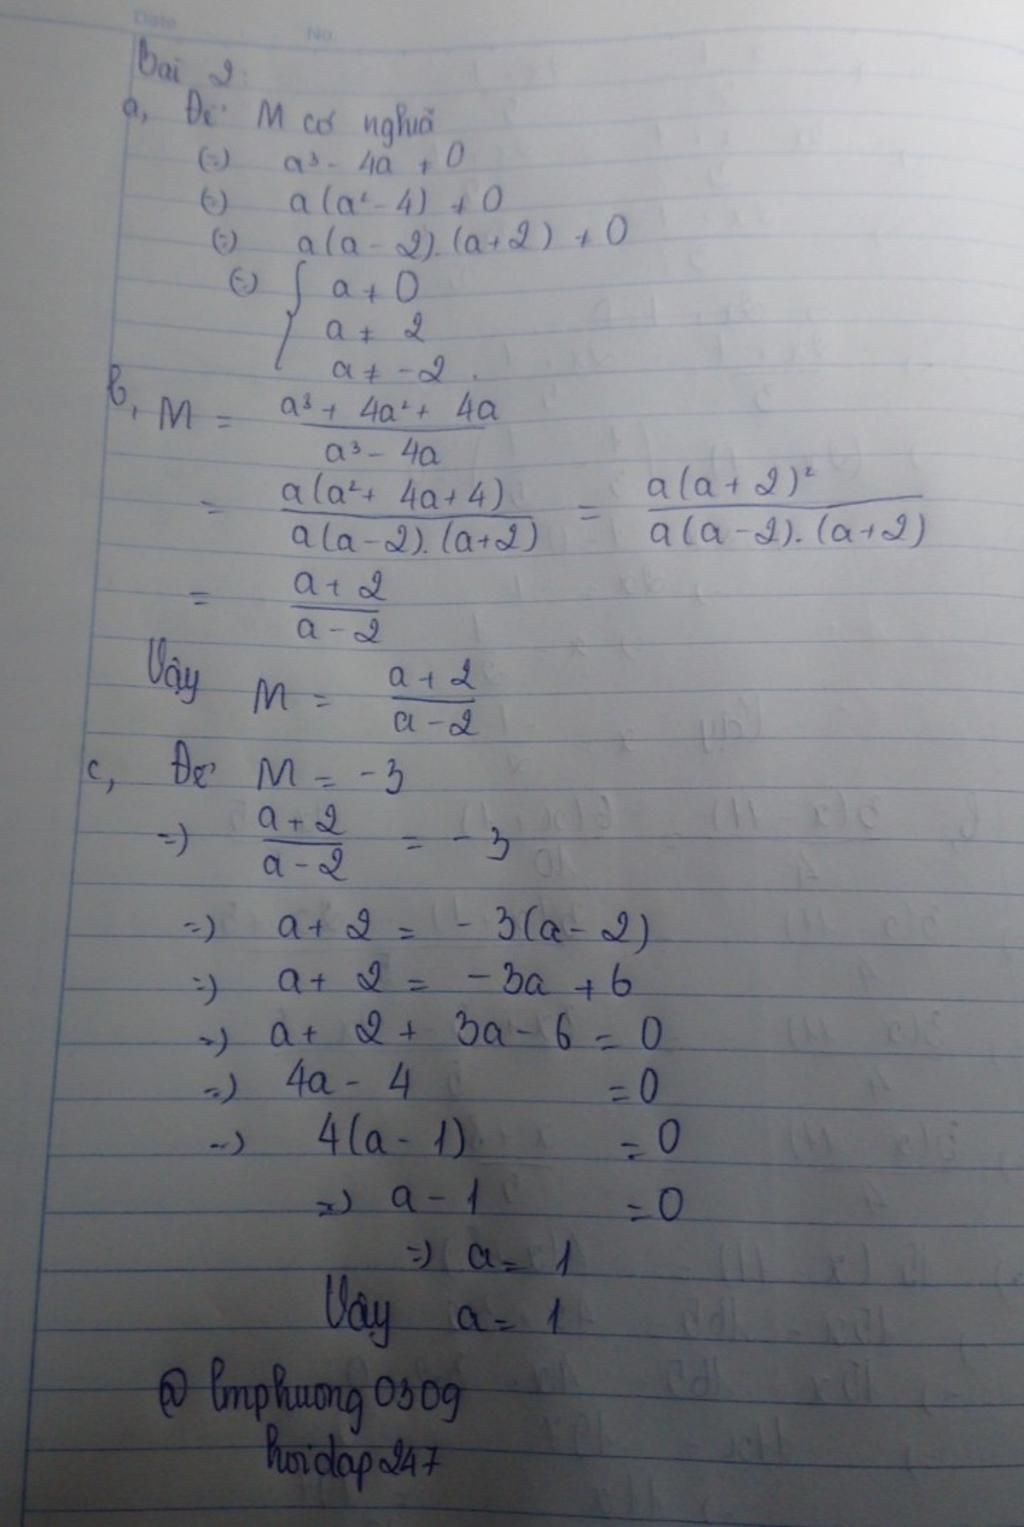 Date No.
Bài 2:
a, Để M có nghĩa
(=) a³ - 4a ≠ 0
(=) a(a² - 4) ≠ 0
(=) a(a - 2).(a+2) ≠ 0
(=) { a ≠ 0
a ≠ 2
a ≠ -2.
b, M = \frac{a³ + 4a² + 4a}{a³ - 4a}
= \frac{a(a² + 4a + 4)}{a(a - 2).(a+2)} = \frac{a(a + 2)²}{a(a - 2).(a+2)}
= \frac{a + 2}{a - 2}
Vậy M = \frac{a + 2}{a - 2}
c, Để M = -3
=) \frac{a + 2}{a - 2} = -3
=) a + 2 = -3(a - 2)
=) a + 2 = -3a + 6
=) a + 2 + 3a - 6 = 0
=) 4a - 4 = 0
=) 4(a - 1) = 0
=) a - 1 = 0
=) a = 1
Vậy a = 1
@ lmphuong0309
hoidap247